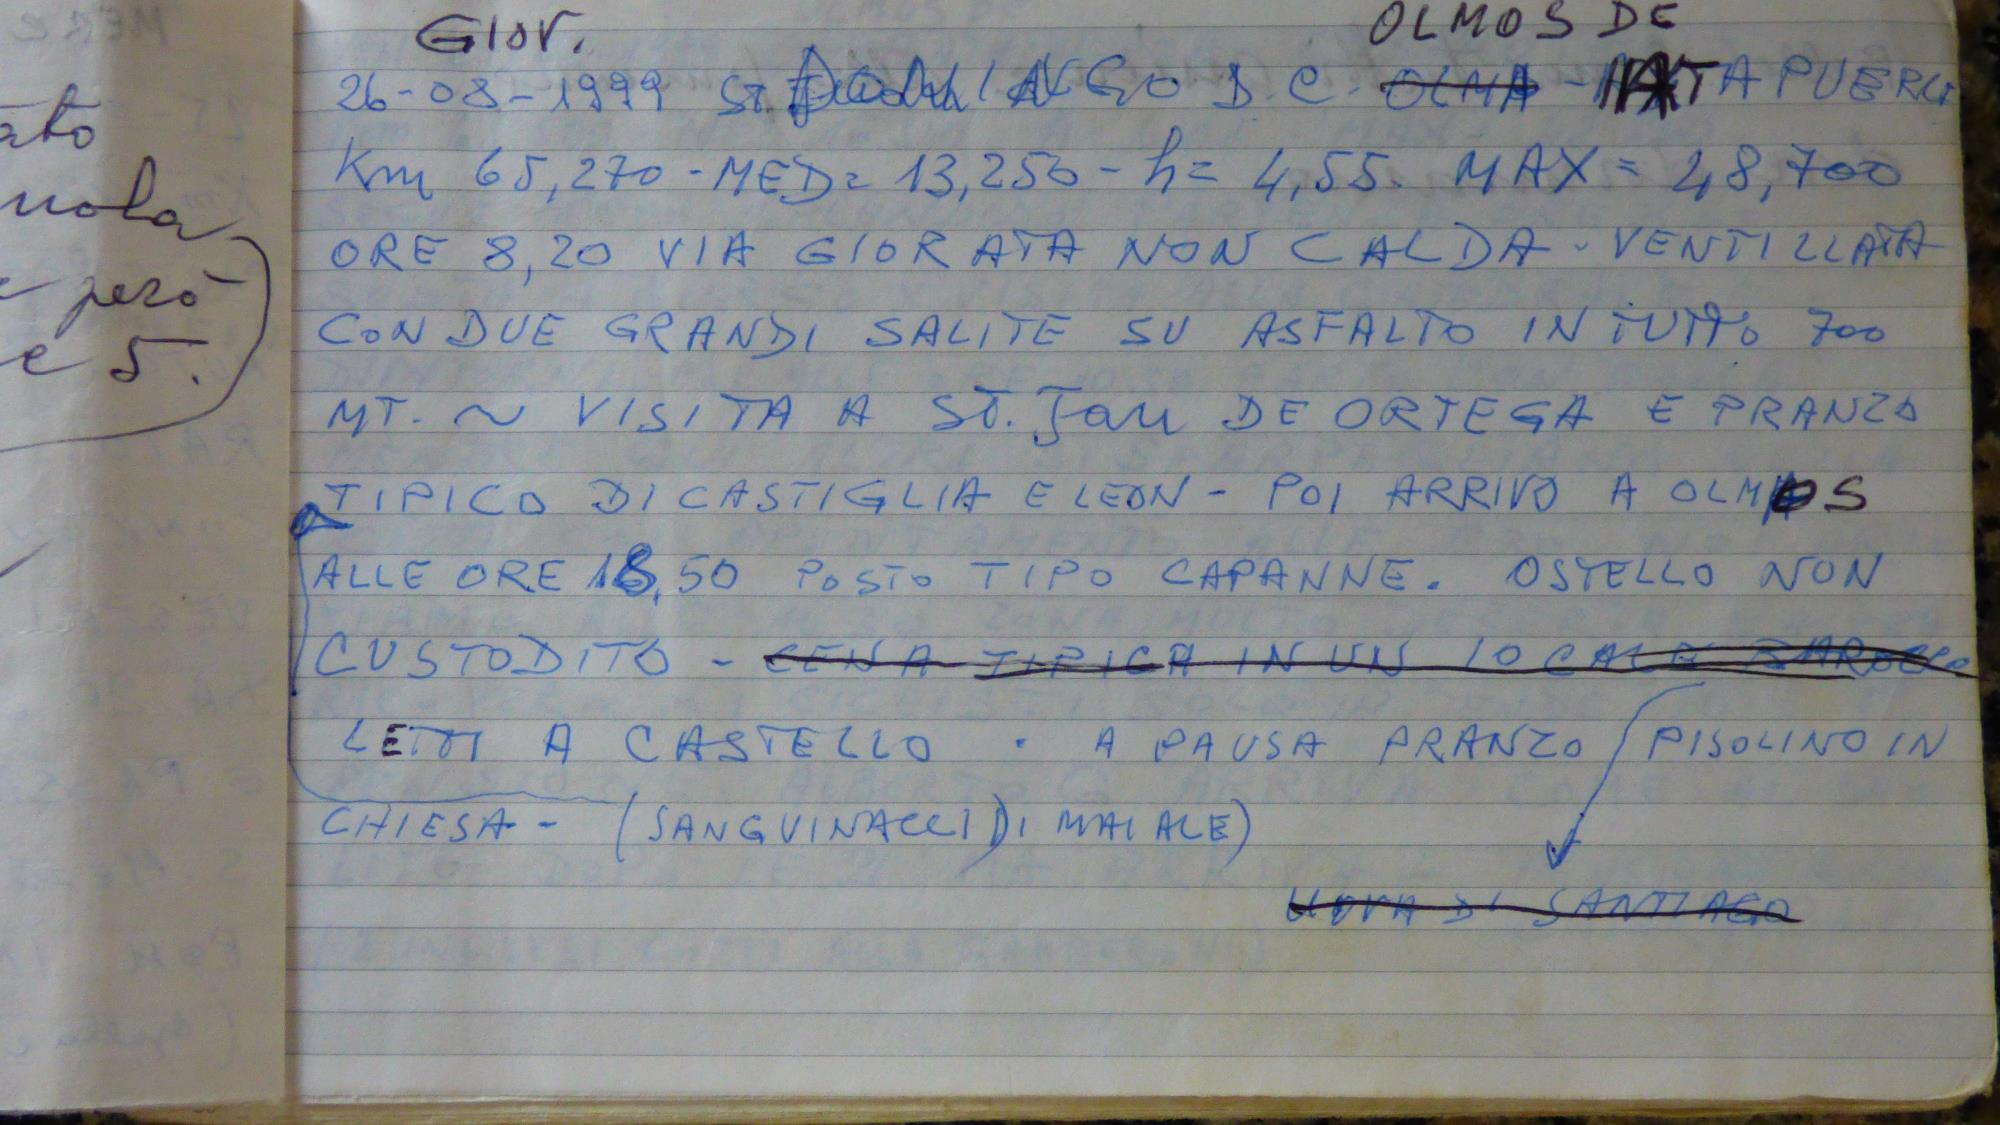 GIOV. OLMOS DE
26-08-1999 St. DOMINGO D.C. OLMA - ATAPUERCA
Km 65,270 - MED= 13,250 - h= 4,55. MAX = 48,700
ORE 8,20 VIA GIORATA NON CALDA - VENTILLATA
CON DUE GRANDI SALITE SU ASFALTO IN TUTTO 700
MT. ~ VISITA A ST. Jan DE ORTEGA E PRANZO
TIPICO DI CASTIGLIA E LEON - POI ARRIVO A OLMOS
ALLE ORE 18,50 POSTO TIPO CAPANNE. OSTELLO NON
CUSTODITO - CENA TIPICA IN UN LOCALE BAROCCO
LETTI A CASTELLO . A PAUSA PRANZO PISOLINO IN
CHIESA - (SANGUINACCI DI MAIALE)
UOVA DI SANTIAGO
ato
nola
e però
e 5.